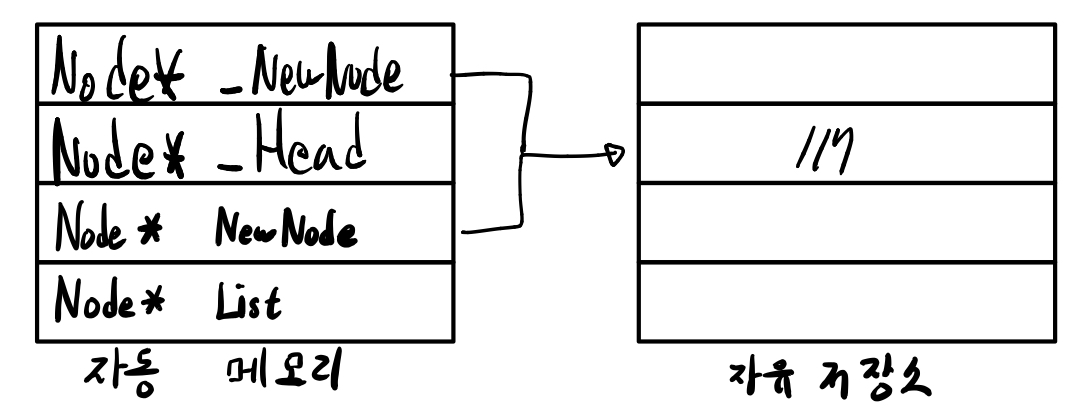 Node* _NewNode
Node* _Head
117
Node* NewNode
Node* List
자동 메모리
자유 저장소